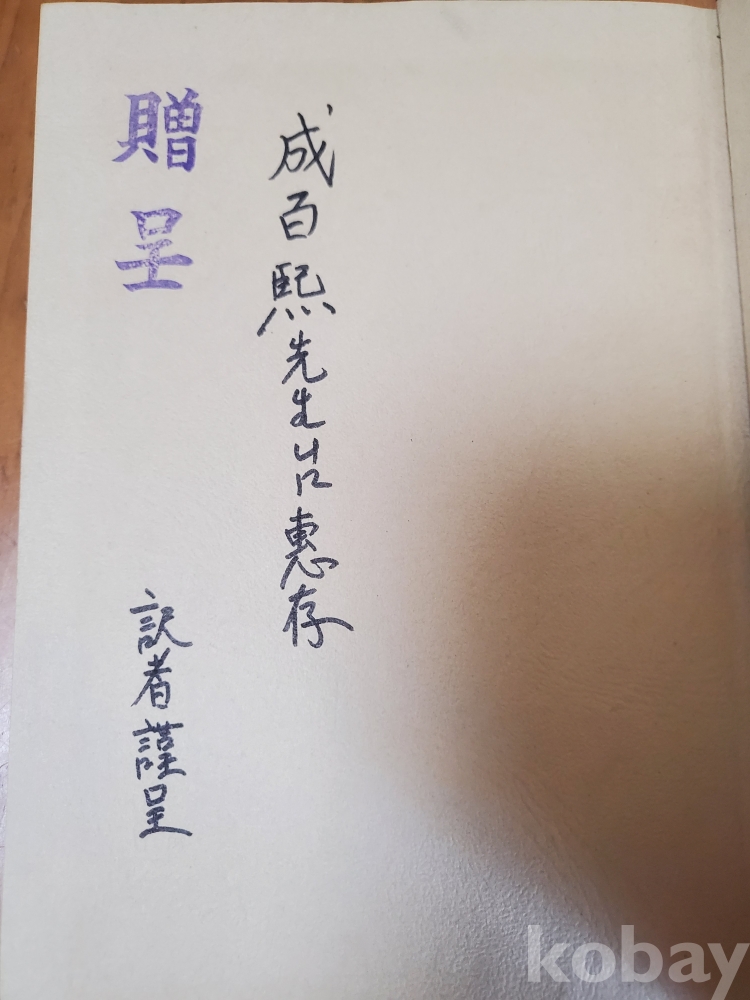 成百熙先生 惠存
贈呈
訳者謹呈
kobay